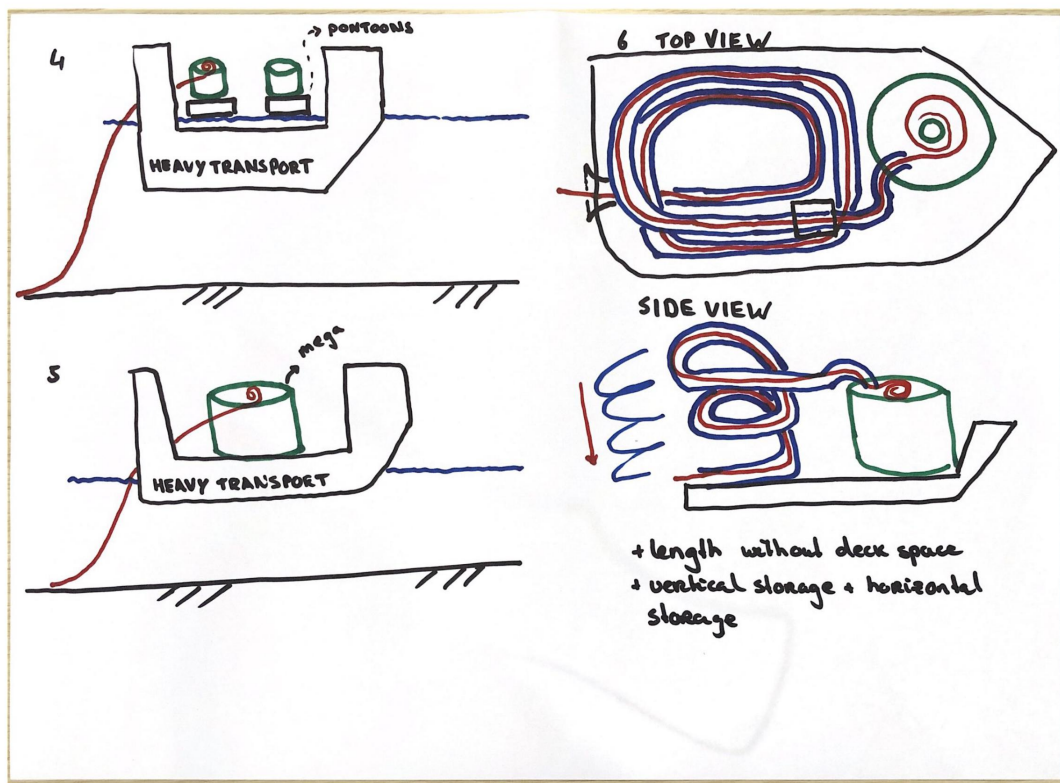 4
PONTOONS
HEAVY TRANSPORT
5
mega
HEAVY TRANSPORT
6 TOP VIEW
SIDE VIEW
+ length without deck space
+ vertical storage + horizontal
storage